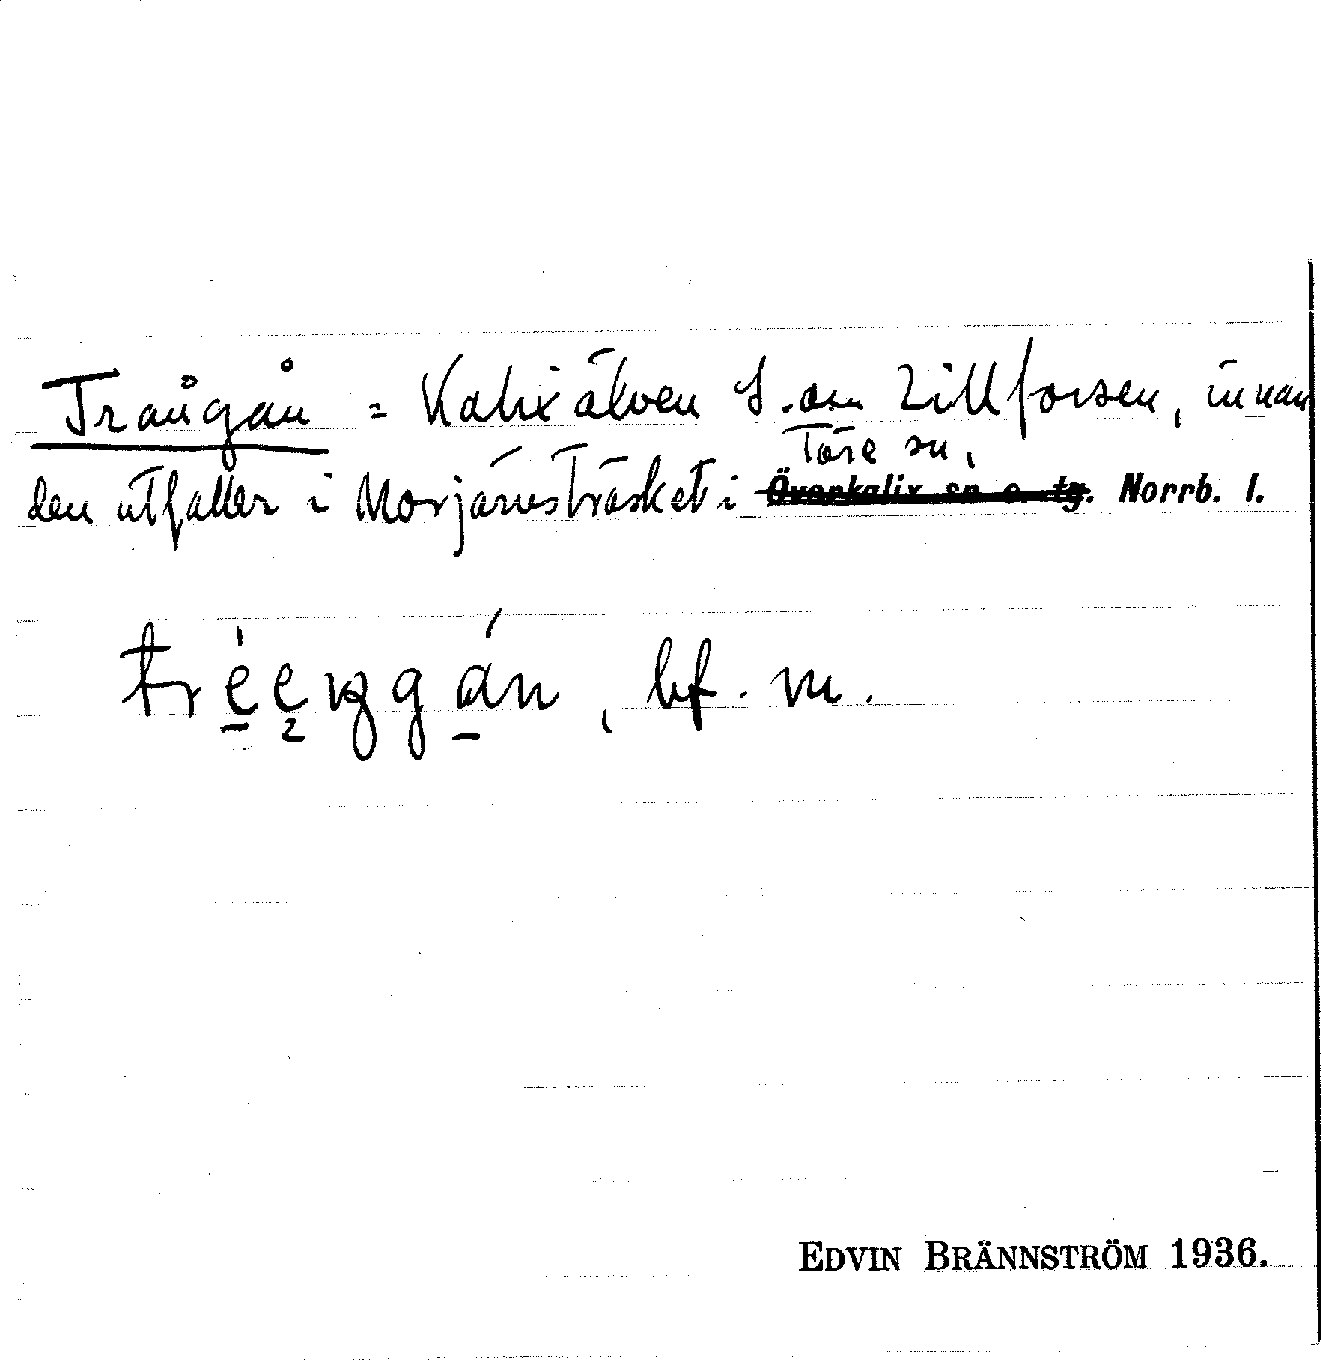 Trångån = Kalixälven S. om Lillforsen, innan
Töre sn,
den utfaller i Morjärvsträsket i Överkalix sn o. tg. Norrb. l.
bf. m.
EDVIN BRÄNNSTRÖM 1936.